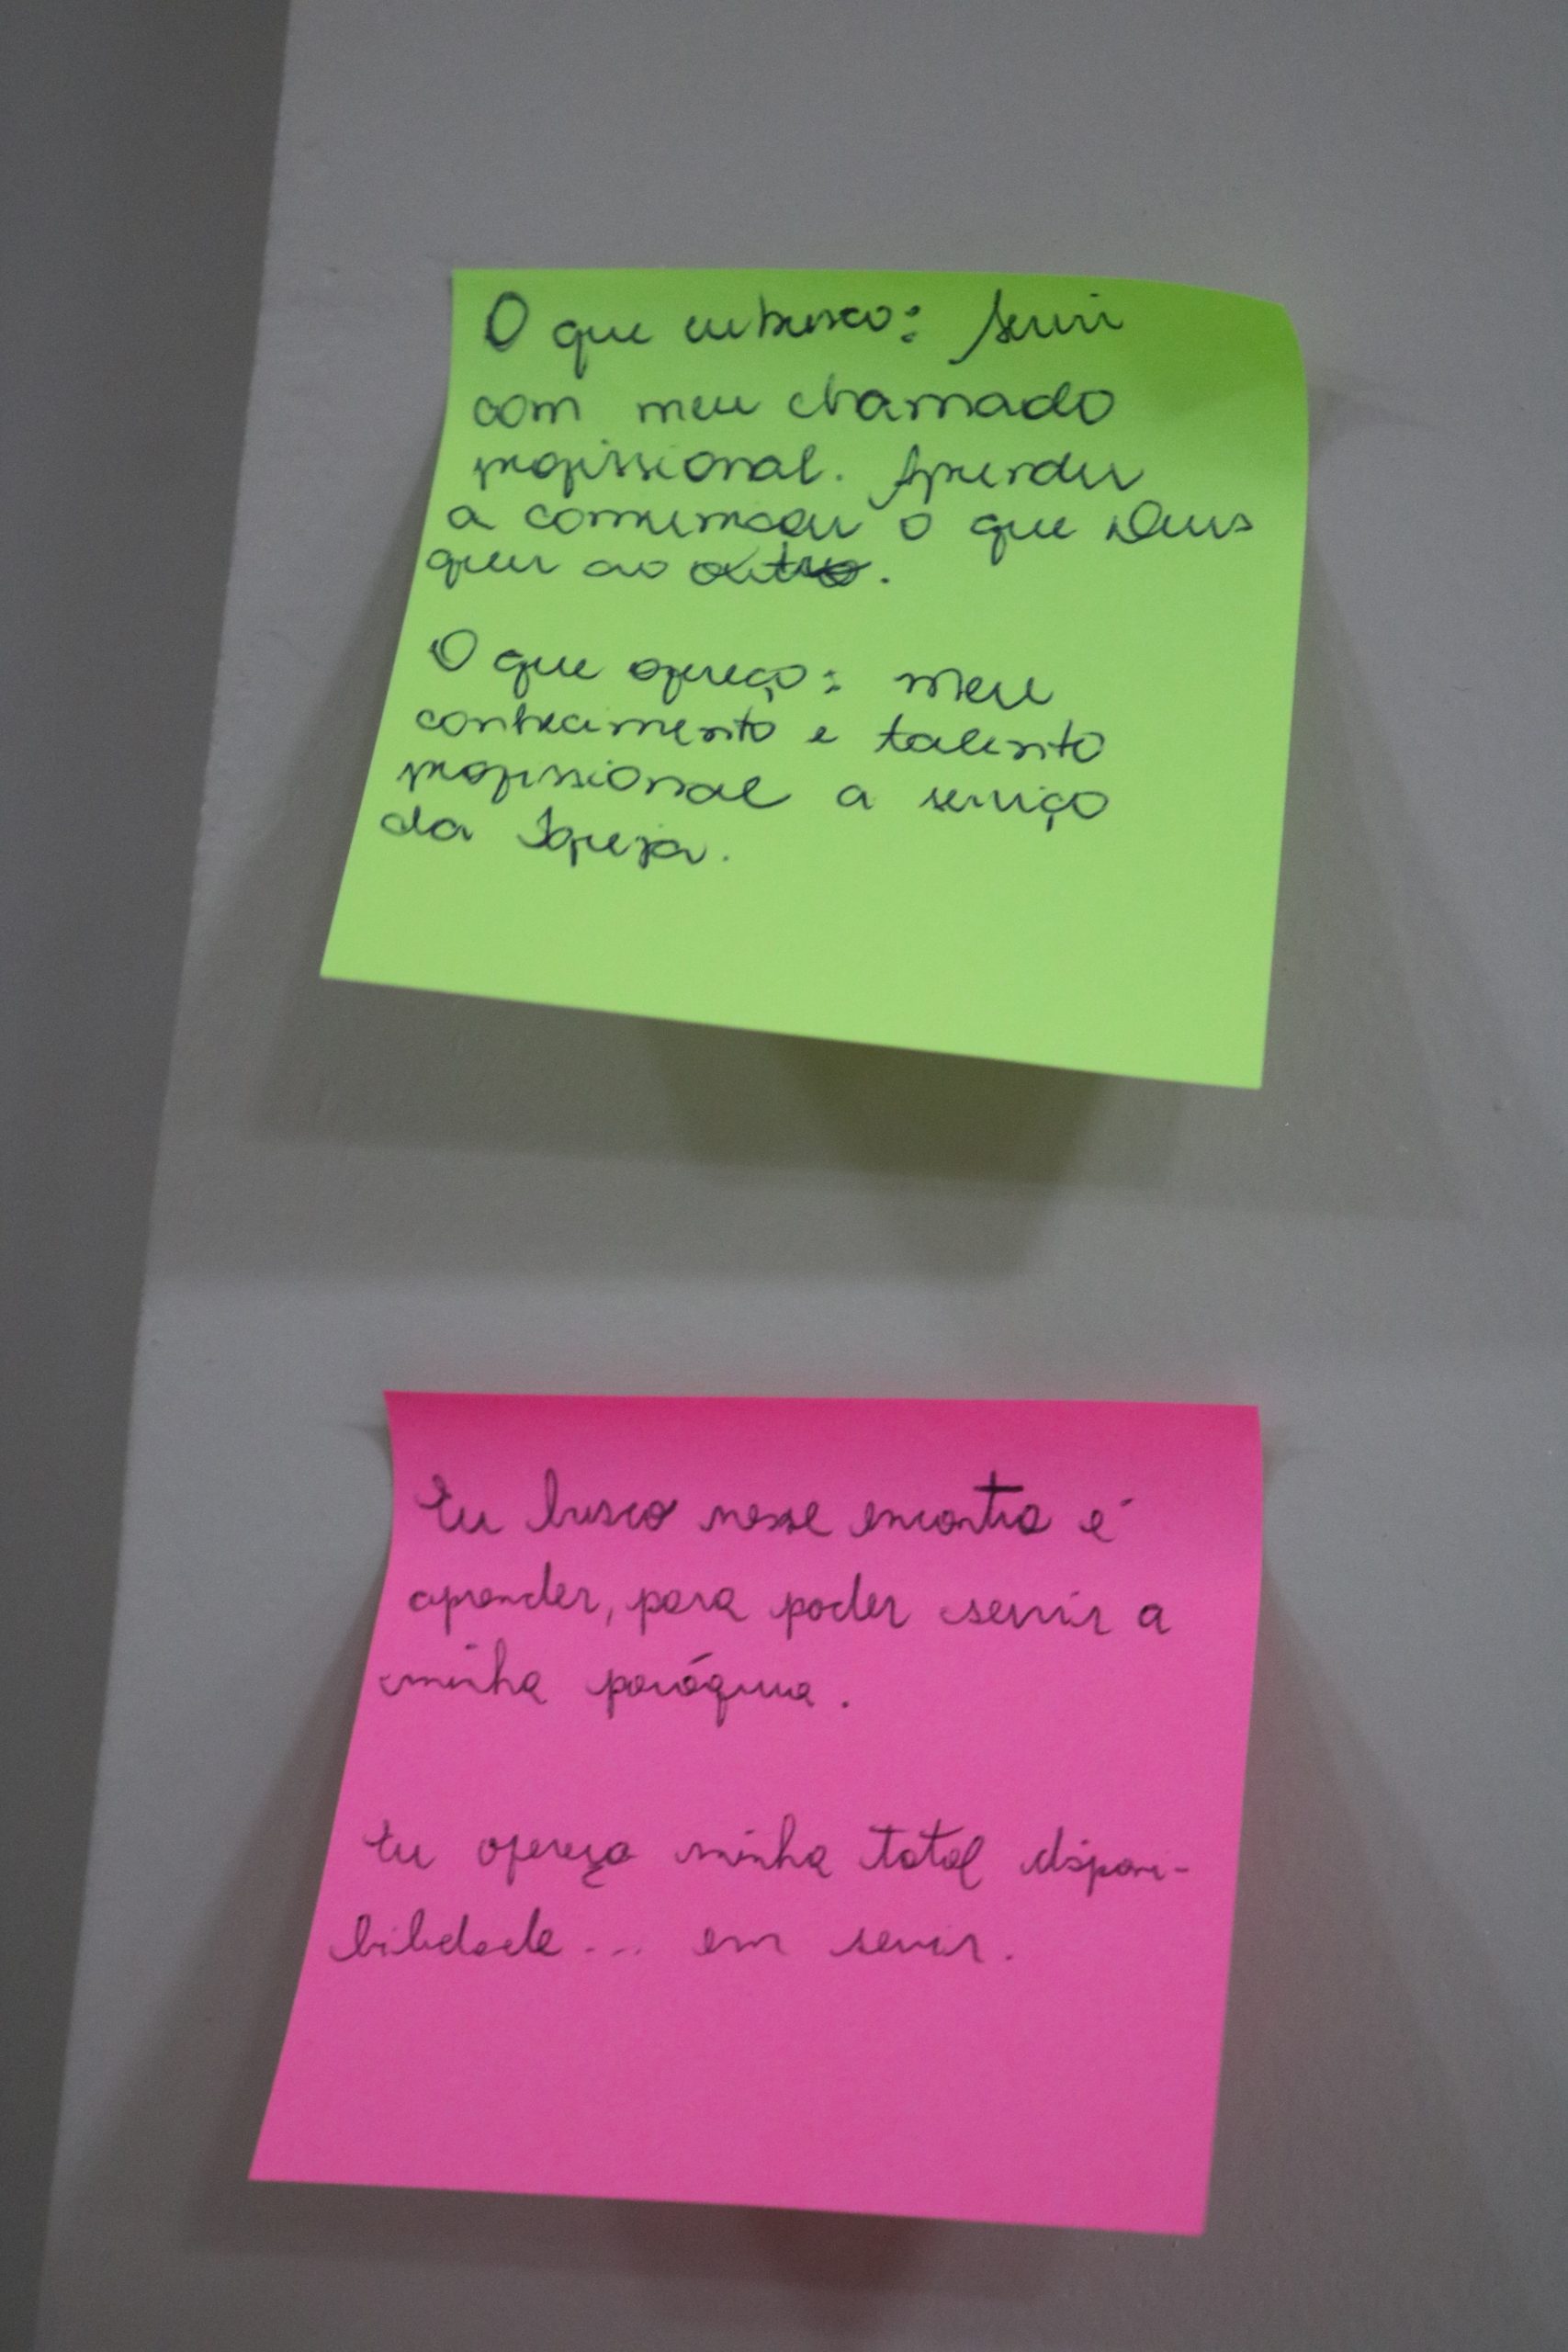 O que eu busco: Servir
com meu chamado
profissional. Aprender
a comunicar o que Deus
quer ao outro.
O que ofereço: meu
conhecimento e talento
profissional a serviço
da Igreja.
Eu busco nesse encontro é
aprender, para poder servir a
minha paróquia.
Eu ofereço minha total disponi-
bilidade... em servir.